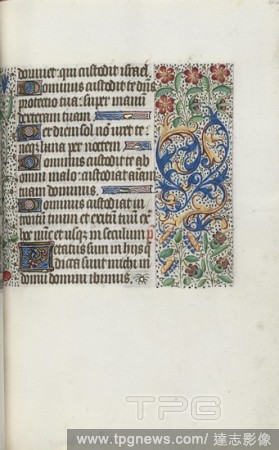 dormiet: qui custodit israel.
Dominus custodit te dñs
protectio tua: super manũ
dexteram tuam.
Per diem sol nõ uret te:
neqz luna per noctem.
Dominus custodit te ab
omni malo: custodiat aĩam
tuam dominus.
Dominus custodiat in
troitum tuum et exitũ tuũ
ex hoc nũc et usqz in seculum
Letatus sum in hys
dicta sunt michi in
domũ domini ibimus.
TPG
www.tpgnews.com/ 達志影像